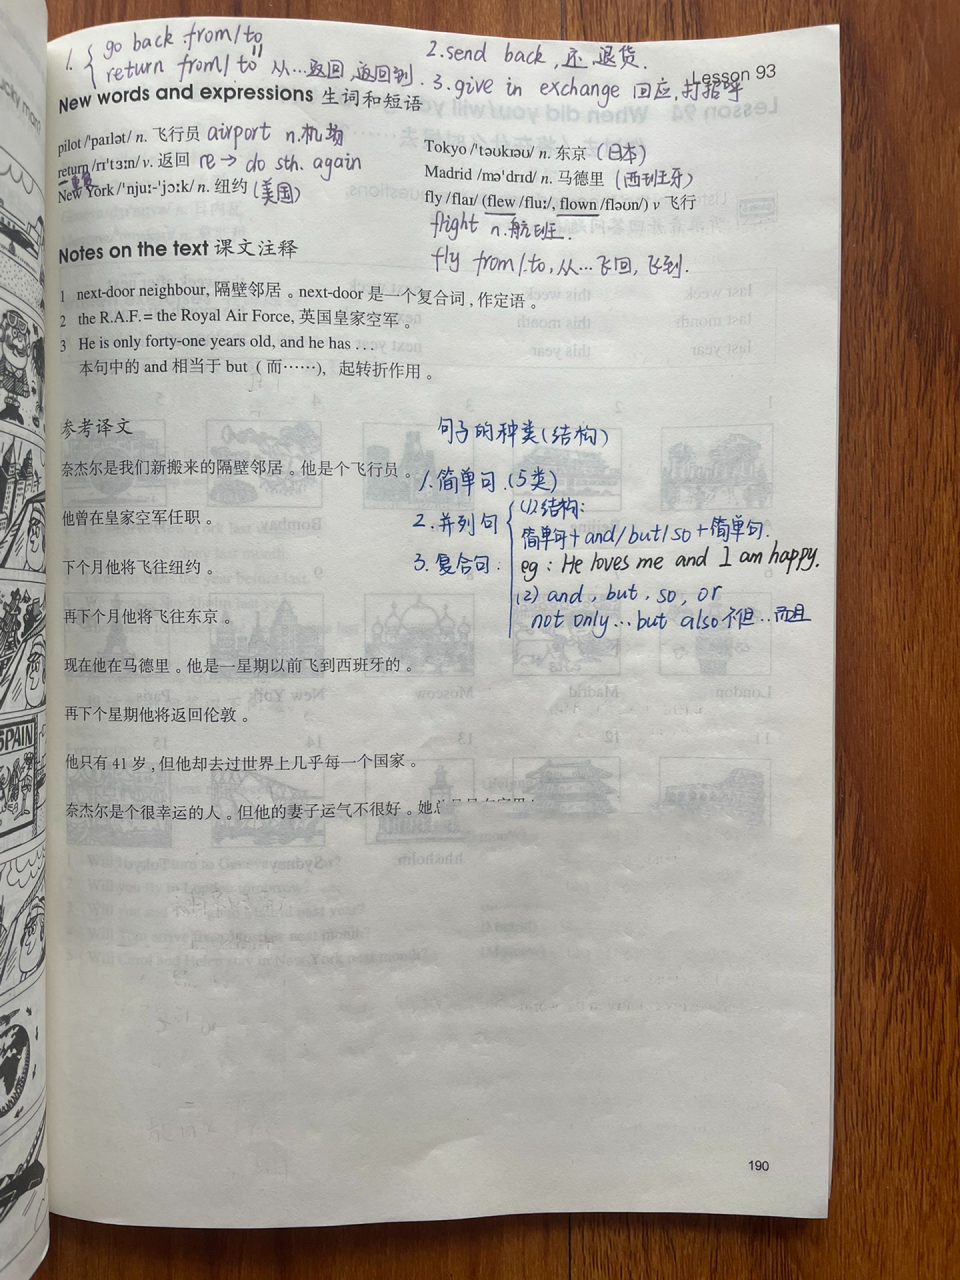 1. { go back from/to
return from/to 从…返回,返回到.
2. send back, 还, 退货.
Lesson 93
3. give in exchange 回应, 打招呼
New words and expressions 生词和短语
pilot /'paɪlət/ n. 飞行员 airport n.机场
return /rɪ'tɜːn/ v. 返回 re → do sth. again
一重复
New York /'njuː-'jɔːk/ n. 纽约 (美国)
Tokyo /'təʊkɪəʊ/ n. 东京 (日本)
Madrid /mə'drɪd/ n. 马德里 (西班牙)
fly /flaɪ/ (flew /fluː/, flown /fləʊn/) v 飞行
flight n.航班.
fly from/to, 从…飞回, 飞到.
Notes on the text 课文注释
1 next-door neighbour, 隔壁邻居。next-door 是一个复合词,作定语。
2 the R.A.F. = the Royal Air Force, 英国皇家空军。
3 He is only forty-one years old, and he has …
本句中的 and 相当于 but ( 而……), 起转折作用。
参考译文
奈杰尔是我们新搬来的隔壁邻居。他是个飞行员。
他曾在皇家空军任职。
下个月他将飞往纽约。
再下个月他将飞往东京。
现在他在马德里。他是一星期以前飞到西班牙的。
再下个星期他将返回伦敦。
他只有 41 岁,但他却去过世界上几乎每一个国家。
奈杰尔是个很幸运的人。但他的妻子运气不很好。她
句子的种类(结构)
1. 简单句. (5类)
2. 并列句 { (1) 结构:
简单句 + and/but/so + 简单句.
3. 复合句.
eg: He loves me and I am happy.
(2) and, but, so, or
not only… but also 不但…而且
SPAIN
190